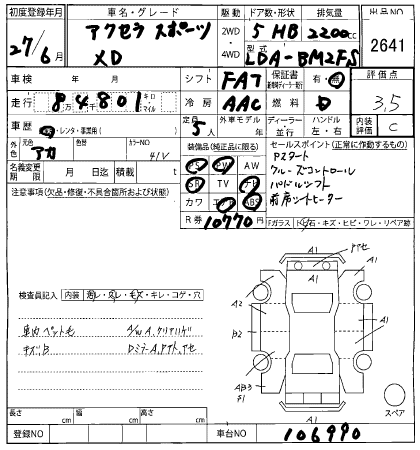 初度登録年月
27/6月
車名・グレード
アクセラ スポーツ
XD
駆動
2WD
4WD
ドア数・形状
5 HB
排気量
2200cc
型式
LDA-BM2FS
出品NO
2641
車検 年 月
シフト FA7
保証書 有・無
評価点
3.5
走行 84801 キロ・マイル
冷房 AAC
燃料
車歴 ・レンタ・事業用( )
定員 5人
外車モデル 年
ディーラー 並行
ハンドル 左・右
内装評価 C
外色 元色 アカ
色替
カラーNO 41V
名義変更期限 月 日迄
積載 t
装備品(純正品に限る)
PS PW AW
SR TV ナビ
カワ エアB ABS
R券 10770円
セールスポイント(正常に作動するもの)
P2タート
クルーズコントロール
パドルシフト
前席シートヒーター
注意事項(欠品・修復・不具合箇所および状態)
Fガラス 石・キズ・ヒビ・ワレ・リペア跡
検査員記入 内装 ・スレ・キズ・キレ・コゲ・穴
車内ペット毛
A1
アセ
A1
A1
A2
B2
A1
A1
A1
スペア
長さ cm
幅 cm
高さ cm
登録NO
車台NO 106990